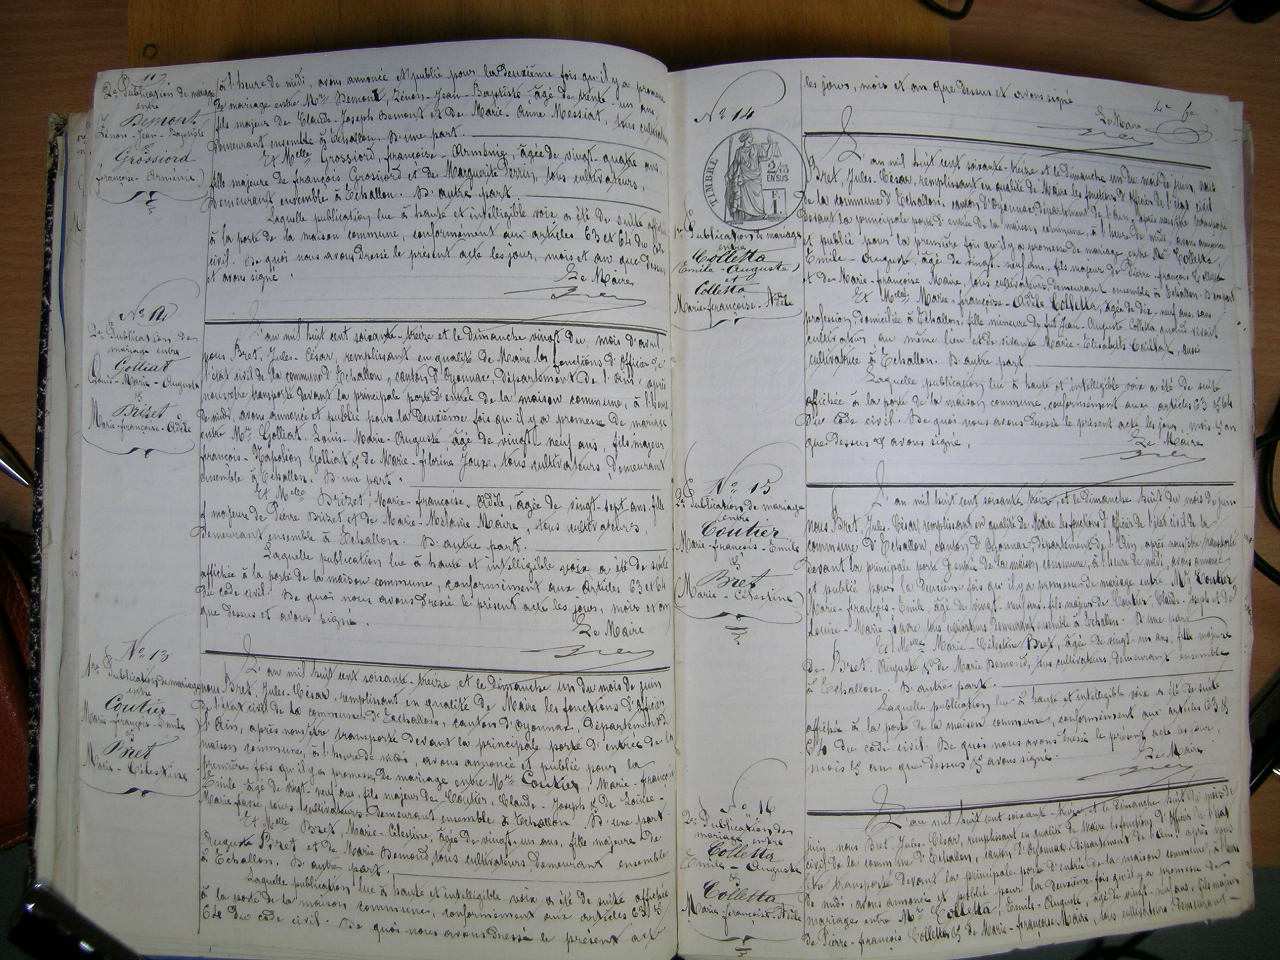 2e Publication de mariage
entre
Demont
Zénon-Jean-Baptiste
et
Grossiord
(Françoise-Arménie)
à l'heure de midi, avons annoncé et publié pour la deuxième fois qu'il y a promesse
de mariage entre Mr Demont, Zénon-Jean-Baptiste âgé de trente-un ans
fils majeur de Claude-Joseph Demont et de Marie-Anne Messiat, tous cultivateurs
demeurant ensemble à Echallon. D'une part.
Et Melle Grossiord-françoise-Arménie, âgée de vingt-quatre ans
fille majeure de françois Grossiord et de Marguerite Perrin, tous cultivateurs,
demeurant ensemble à Echallon. D'autre part.
Laquelle publication lue à haute et intelligible voix a été de suite affichée
à la porte de la maison commune, conformément aux articles 63 et 64 du code
civil. De quoi nous avons dressé le présent acte les jour, mois et an que dessus
et avons signé.
Le Maire
Bret
No 12
2e Publication de
mariage entre
Golliat
Louis-Marie-Auguste
et
Brizet
Marie-françoise-Adèle
L'an mil huit cent soixante-treize et le dimanche vingt du mois d'avril
nous Bret, Jules-César, remplissant en qualité de Maire les fonctions d'officier de
l'état civil de la commune d'Echallon, canton d'Oyonnax, département de l'Ain, après
nous être transporté devant la principale porte d'entrée de la maison commune, à l'heure
de midi, avons annoncé et publié pour la deuxième fois qu'il y a promesse de mariage
entre Mr Golliat, Louis-Marie-Auguste âgé de vingt-neuf ans, fils majeur
françois-Napoléon Golliat & de Marie-florine Joux, tous cultivateurs, demeurant
ensemble à Echallon. D'une part.
Et Melle Brizet, Marie-françoise-Adèle, âgée de vingt-sept ans, fille
majeure de Pierre Brizet et de Marie-Mélanie Maire, tous cultivateurs
demeurant ensemble à Echallon. D'autre part.
Laquelle publication lue à haute et intelligible voix a été de suite
affichée à la porte de la maison commune, conformément aux articles 63 et 64
du code civil. De quoi nous avons dressé le présent acte les jour, mois et an
que dessus et avons signé.
Le Maire
Bret
No 13
1re Publication de mariage
entre
Coutier
Marie-françois-Emile
et
Bret
Marie-Célestine
L'an mil huit cent soixante-treize, et le dimanche un du mois de juin
nous Bret, Jules-César, remplissant en qualité de Maire les fonctions d'officier
de l'état civil de la commune d'Echallon, canton d'Oyonnax, département
de l'Ain, après nous être transporté devant la principale porte d'entrée de la
maison commune, à l'heure de midi, avons annoncé et publié pour la
première fois qu'il y a promesse de mariage entre Mr Coutier, Marie-françois
Emile âgé de vingt-neuf ans, fils majeur de Coutier, Claude-Joseph & de Louise-
Marie favre, tous cultivateurs demeurant ensemble à Echallon. D'une part
Et Melle Bret, Marie-Célestine, âgée de vingt-un ans, fille majeure de
Auguste Bret et de Marie Demond, tous cultivateurs, demeurant ensemble
à Echallon. D'autre part.
Laquelle publication lue à haute et intelligible voix a été de suite affichée
à la porte de la maison commune, conformément aux articles 63 &
64 du code civil. De quoi nous avons dressé le présent acte
No 14
TIMBRE
1re Publication de mariage
entre
Colletta
(Emile-Auguste)
et
Colletta
Marie-françoise-Adèle
les jour, mois et an que dessus et avons signé
Le Maire
Bret
L'an mil huit cent soixante-treize et le dimanche un du mois de juin, nous
Bret, Jules-César, remplissant en qualité de Maire les fonctions d'officier de l'état civil
de la commune d'Echallon, canton d'Oyonnax, département de l'Ain, après nous être transporté
devant la principale porte d'entrée de la maison commune, à l'heure de midi, avons annoncé
et publié pour la première fois qu'il y a promesse de mariage entre Mr Colletta,
Emile-Auguste, âgé de vingt-neuf ans, fils majeur de Pierre-françois Colletta
et de Marie-françoise Maire, tous cultivateurs demeurant ensemble à Echallon. D'une part
Et Melle Marie-françoise-Adèle Colletta, âgée de dix-neuf ans, sans
profession, domiciliée à Echallon, fille mineure de feu Jean-Auguste Colletta
cultivateur au même lieu et de vivante Marie-Elisabeth aussi
cultivatrice à Echallon. D'autre part
Laquelle publication, lue à haute et intelligible voix a été de suite
affichée à la porte de la maison commune, conformément aux articles 63 & 64
du code civil. De quoi nous avons dressé le présent acte les jour, mois & an
que dessus & avons signé.
Le Maire
Bret
No 15
2e Publication de mariage
entre
Coutier
Marie-François-Emile
&
Bret
Marie-Célestine
L'an mil huit cent soixante treize, et le dimanche huit du mois de juin
nous Bret, Jules César remplissant en qualité de Maire les fonctions d'officier de l'état civil de la
commune d'Echallon, canton d'Oyonnax, département de l'Ain, après nous être transporté
devant la principale porte d'entrée de la maison commune, à l'heure de midi, avons annoncé
et publié pour la dernière fois qu'il y a promesse de mariage entre Mr Coutier
Marie-françois-Emile âgé de vingt-neuf ans, fils majeur de Coutier Claude-Joseph et de
Louise-Marie favre tous cultivateurs demeurant ensemble à Echallon. D'une part
Et Melle Marie-Célestine Bret, âgée de vingt-un ans, fille majeure
de Bret, Auguste & de Marie Demond, tous cultivateurs demeurant ensemble
à Echallon. D'autre part.
Laquelle publication lue à haute et intelligible voix a été de suite
affichée à la porte de la maison commune, conformément aux articles 63 &
64 du code civil. De quoi nous avons dressé le présent acte les jour,
mois & an que dessus & avons signé.
Le Maire
Bret
No 16
2e Publication de
mariage entre
Colletta
Emile-Auguste
&
Colletta
Marie françoise Adèle
L'an mil huit cent soixante-treize et le dimanche huit du mois de
juin, nous Bret, Jules-César, remplissant en qualité de Maire les fonctions d'officier de l'état
civil de la commune d'Echallon, canton d'Oyonnax, département de l'Ain, après nous
être transporté devant la principale porte d'entrée de la maison commune, à l'heure
de midi, avons annoncé et publié pour la deuxième fois qu'il y a promesse de
mariage entre Mr Colletta, Emile-Auguste, âgé de vingt-neuf ans, fils majeur
de Pierre-françois Colletta & de Marie-françoise Maire, tous cultivateurs demeurant-